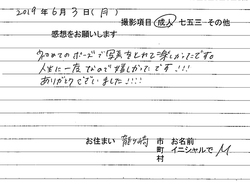 2019年6月3日(月)
撮影項目 成人 七五三 その他
感想をお願いします
初めてのポーズで写真をとれて楽しかったです。
人生に一度なので嬉しかったです!!!
ありがとうございました!!!!
お住まい 龍ケ崎 市 お名前
町 イニシャルで M
村